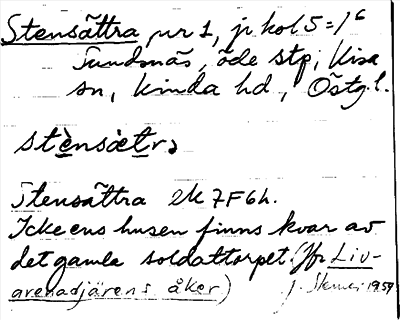 Stensättra, nr 1, jr kol 5 = 1⁶
Sundsnäs, öde stp, Kisa
sn, Kinda hd, Östg.l.
stènsæ̀tra
Stensättra ek 7F6h.
Icke ens husen finns kvar av
det gamla soldattorpet. (Jfr Liv-
grenadjärens åker)
J. 1959